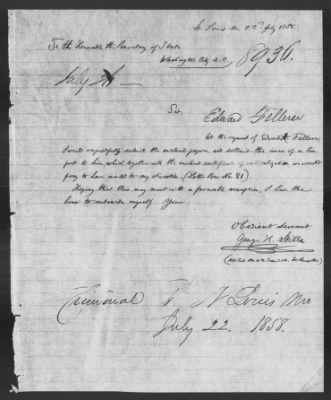 St. Louis Mo 22d July 1858
To the Honorable the Secretary of State
Washington City D.C.
8936.
July
Sir
Edward Fellerer
At the request of Edward Fellerer,
I would respectfully submit the enclosed papers and solicit the issue of a Pass
port to him which together with the enclosed certificate of naturalization you would
pray to have mailed to my direction (Letter Box No. 80)
Hoping that this may meet with a favorable reception, I have the
honor to subscribe myself Your
Obedient servant
George H.
Criminal St Louis Mo
July 22. 1858.